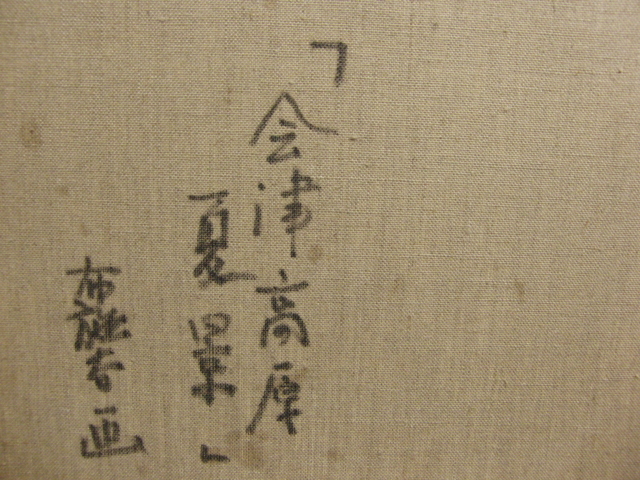 「会津高原
夏景」
布施 画